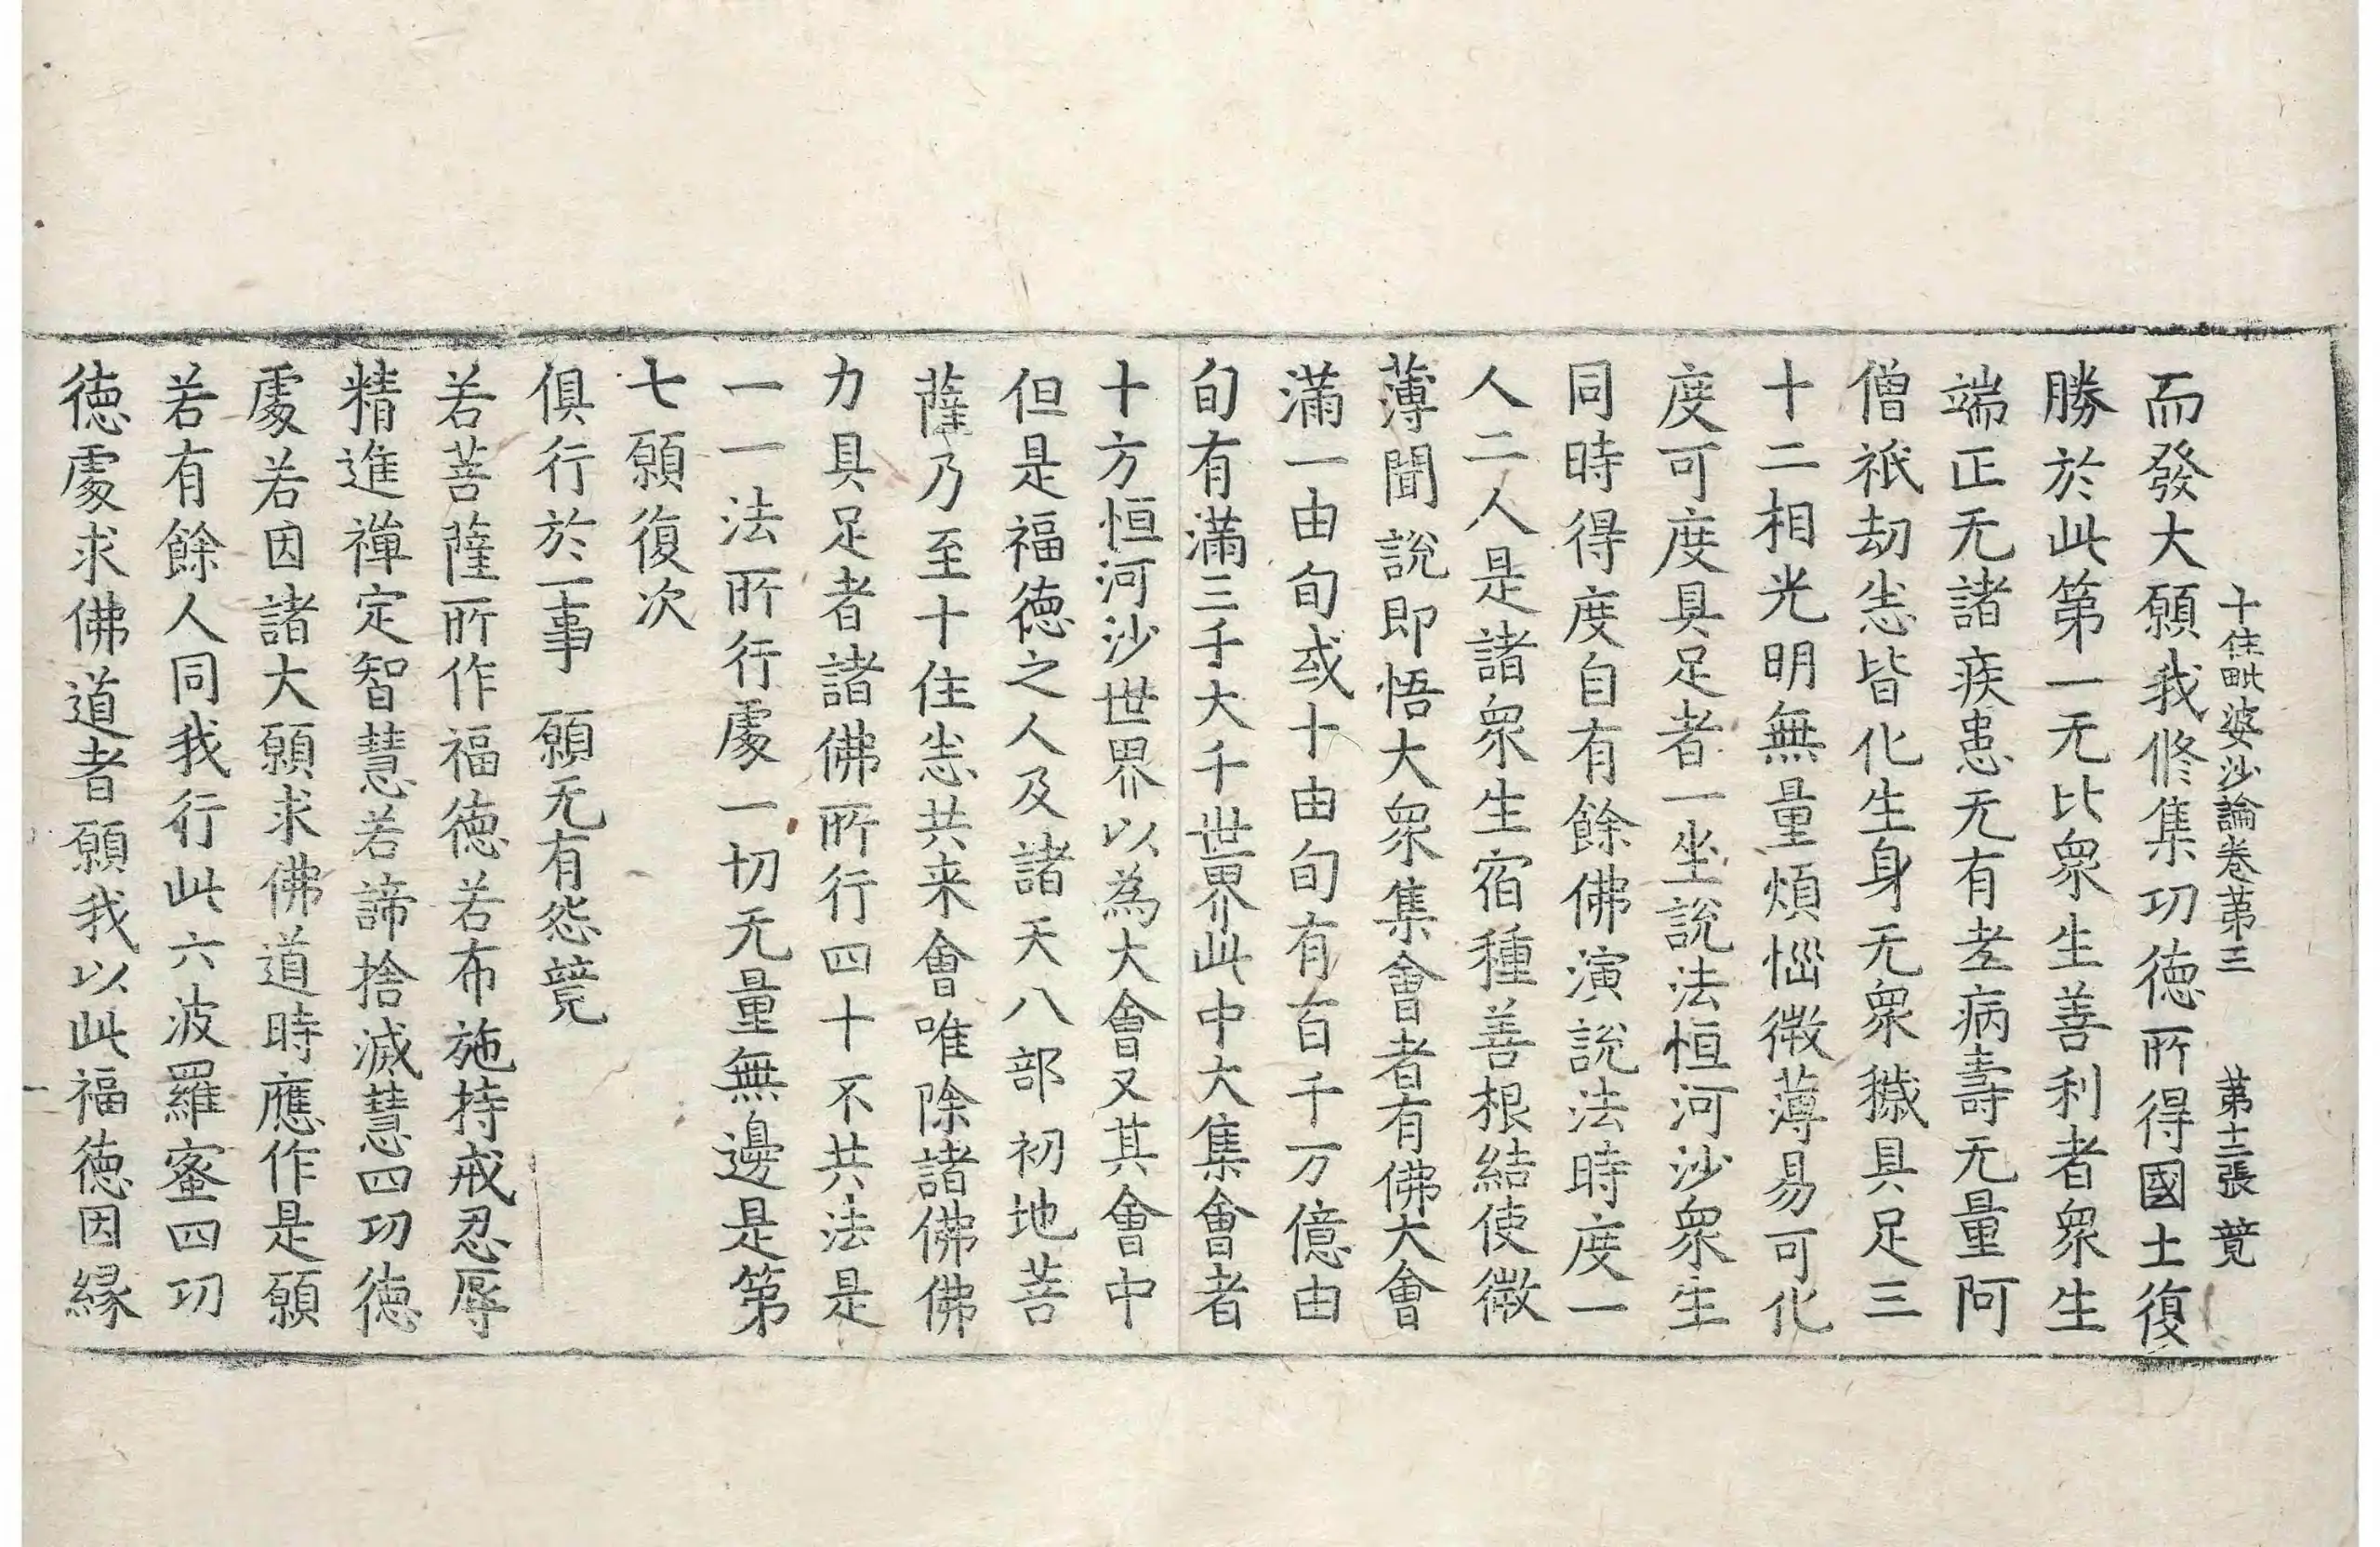 十住毗婆沙論卷苐三　苐十二張　竟
而發大願我修集功德所得國土復
勝於此第一无比衆生善利者衆生
端正无諸疾患无有老病壽无量阿
僧祇劫恙皆化生身无衆穢具足三
十二相光明無量煩惱微薄易可化
度可度具足者一坐說法恒河沙衆生
同時得度自有餘佛演說法時度一
人二人是諸衆生宿種善根結使微
薄聞說即悟大衆集會者有佛大會
滿一由旬或十由旬有百千万億由
旬有滿三千大千世界此中大集會者
十方恒河沙世界以為大會又其會中
但是福德之人及諸天八部初地菩
薩乃至十住恙共来會唯除諸佛佛
力具足者諸佛所行四十不共法是
一一法所行處一切无量無邊是第
七願復次
俱行於一事　願无有怨競
若菩薩所作福德若布施持戒忍辱
精進禪定智慧若諦捨滅慧四功德
處若因諸大願求佛道時應作是願
若有餘人同我行此六波羅蜜四功
德處求佛道者願我以此福德因緣